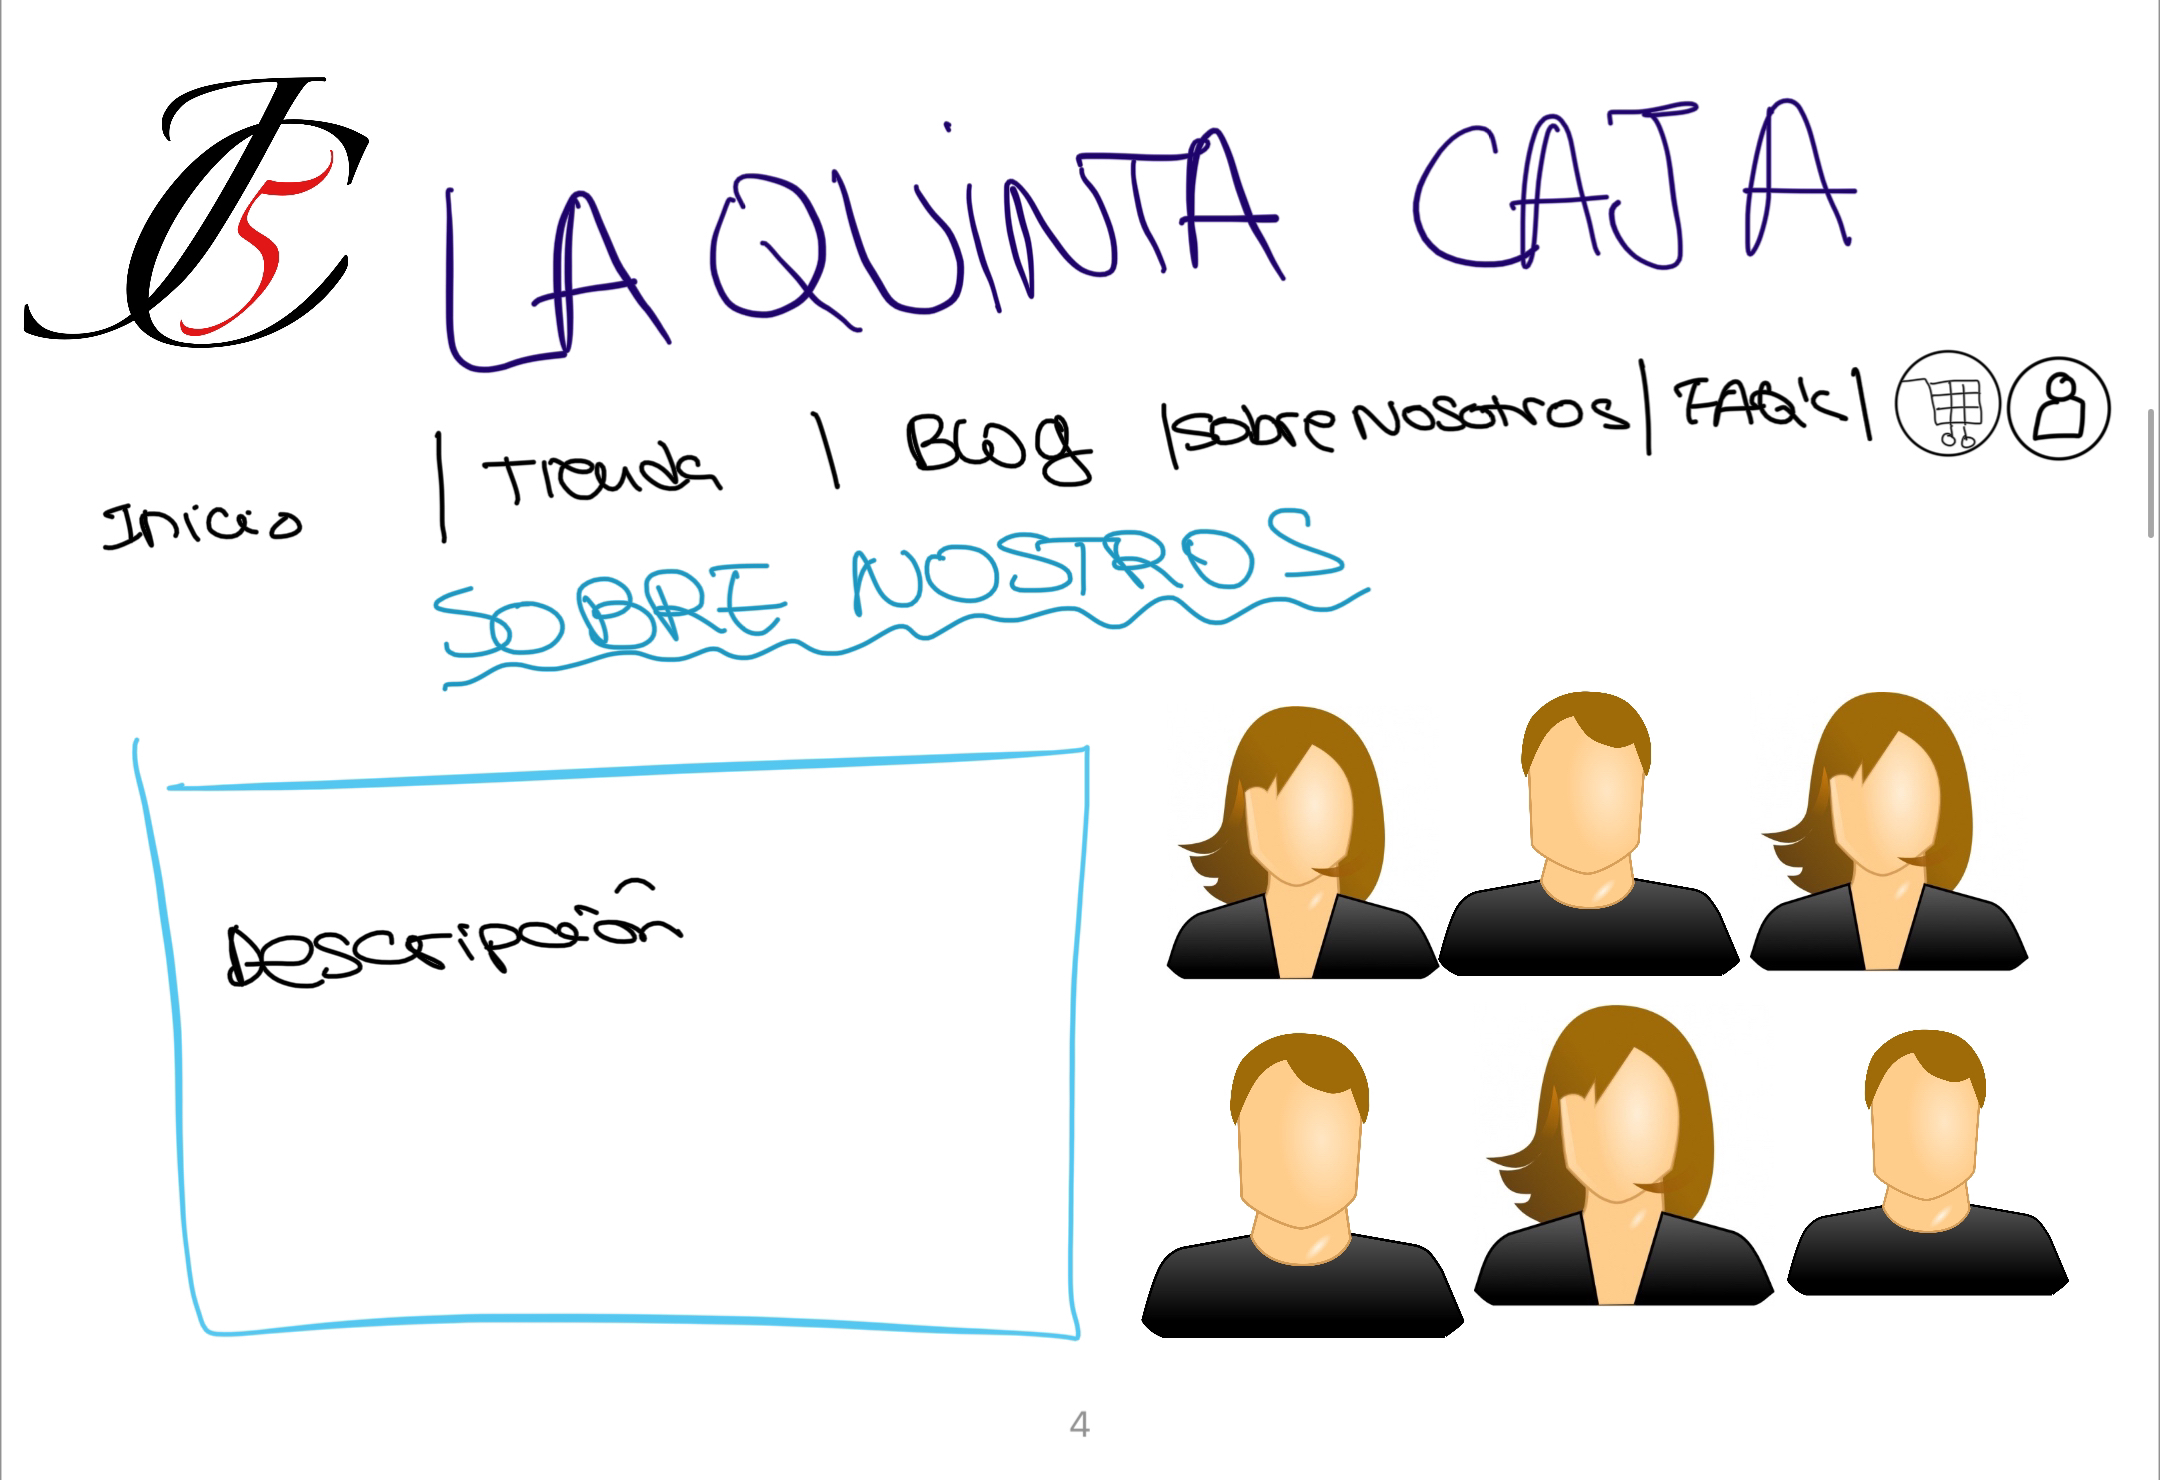 LA QUINTA CAJA
Inicio | Tienda | Blog | Sobre Nosotros | FAQ's |
SOBRE NOSTROS
Descripción
4